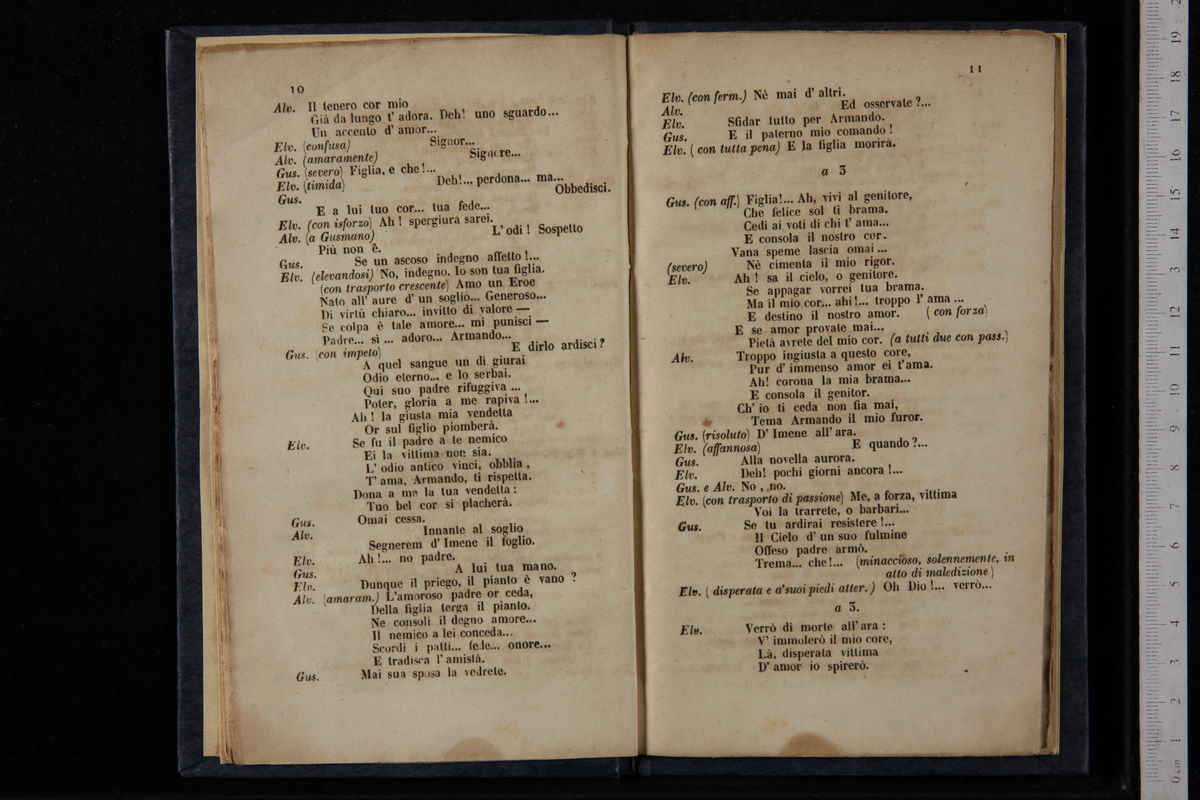 10
Alv. Il tenero cor mio
Già da lungo t' adora. Deh! uno sguardo...
Un accento d' amor...
Elv. (confusa) Signor...
Alv. (amaramente) Signore...
Gus. (severo) Figlia, e che!...
Elv. (timida) Deh!... perdona... ma...
Gus. Obbedisci.
E a lui tuo cor... tua fede...
Elv. (con isforzo) Ah! spergiura sarei.
Alv. (a Gusmano) L' odi! Sospetto
Più non è.
Gus. Se un ascoso indegno affetto!...
Elv. (elevandosi) No, indegno. Io son tua figlia.
(con trasporto crescente) Amo un Eroe
Nato all' aure d' un soglio... Generoso...
Di virtù chiaro... invitto di valore —
Se colpa è tale amore... mi punisci —
Padre... sì ... adoro... Armando...
Gus. (con impeto) E dirlo ardisci?
A quel sangue un dì giurai
Odio eterno... e lo serbai.
Qui suo padre rifuggiva ...
Poter, gloria a me rapiva!...
Ah! la giusta mia vendetta
Or sul figlio piomberà.
Elv. Se fu il padre a te nemico
Ei la vittima non sia.
L' odio antico vinci, obblia,
T' ama, Armando, ti rispetta.
Dona a me la tua vendetta:
Tuo bel cor si placherà.
Gus. Omai cessa.
Alv. Innante al soglio
Segnerem d' Imene il foglio.
Elv. Ah!... no padre.
Gus. A lui tua mano.
Elv. Dunque il priego, il pianto è vano?
Alv. (amaram.) L'amoroso padre or ceda,
Della figlia terga il pianto.
Ne consoli il degno amore...
Il nemico a lei conceda...
Scordi i patti... fede... onore...
E tradisca l' amistà.
Gus. Mai sua sposa la vedrete.
11
Elv. (con ferm.) Nè mai d' altri.
Alv. Ed osservate?...
Elv. Sfidar tutto per Armando.
Gus. E il paterno mio comando!
Elv. (con tutta pena) E la figlia morirà.
a 3
Gus. (con aff.) Figlia!... Ah, vivi al genitore,
Che felice sol ti brama.
Cedi ai voti di chi t' ama...
E consola il nostro cor.
Vana speme lascia omai...
(severo) Nè cimenta il mio rigor.
Elv. Ah! sa il cielo, o genitore.
Se appagar vorrei tua brama.
Ma il mio cor... ahi!... troppo l' ama ...
E destino il nostro amor. (con forza)
E se amor provate mai...
Pietà avrete del mio cor. (a tutti due con pass.)
Alv. Troppo ingiusta a questo core,
Pur d' immenso amor ei t'ama.
Ah! corona la mia brama...
E consola il genitor.
Ch' io ti ceda non fia mai,
Tema Armando il mio furor.
Gus. (risoluto) D' Imene all' ara.
Elv. (affannosa) E quando?...
Gus. Alla novella aurora.
Elv. Deh! pochi giorni ancora!...
Gus. e Alv. No, no.
Elv. (con trasporto di passione) Me, a forza, vittima
Voi la trarrete, o barbari...
Gus. Se tu ardirai resistere!...
Il Cielo d' un suo fulmine
Offeso padre armò.
Trema... che!... (minaccioso, solennemente, in
atto di maledizione)
Elv. (disperata e a'suoi piedi atter.) Oh Dio!... verrò...
a 3.
Elv. Verrò di morte all' ara:
V' immolerò il mio core,
Là, disperata vittima
D' amor io spirerò.